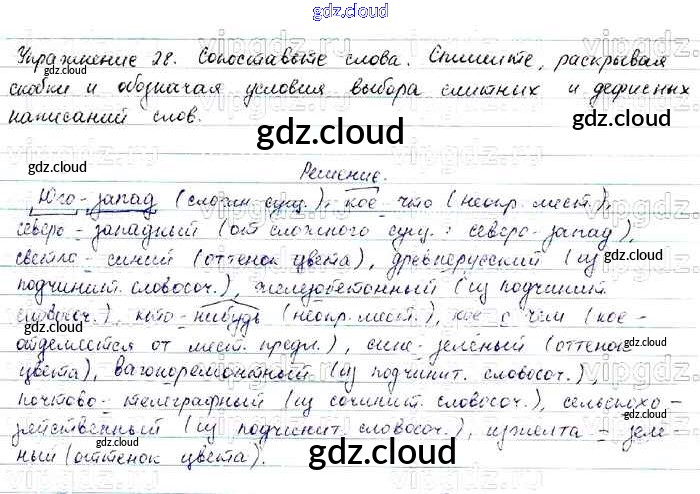 gdz.cloud
Упражнение 28. Сопоставьте слова. Спишите, раскрывая
скобки и обозначая условия выбора слитных и дефисных
написаний слов.
gdz.cloud
Решение.
Юго-запад (сложн. сущ.), кое-что (неопр. мест.),
северо-западный (от сложного сущ.: северо-запад),
светло-синий (оттенок цвета), древнерусский (из
подчинит. словосоч.), железобетонный (из подчинит.
словосоч.), кто-нибудь (неопр. мест.), кое с чем (кое-
отделяется от мест. предл.), сине-зелёный (оттенок
цвета), вагоноремонтный (из подчинит. словосоч.),
почтово-телеграфный (из сочинит. словосоч.), сельскохо-
зяйственный (из подчинит. словосоч.), изжелта-зелё-
ный (оттенок цвета).
gdz.cloud